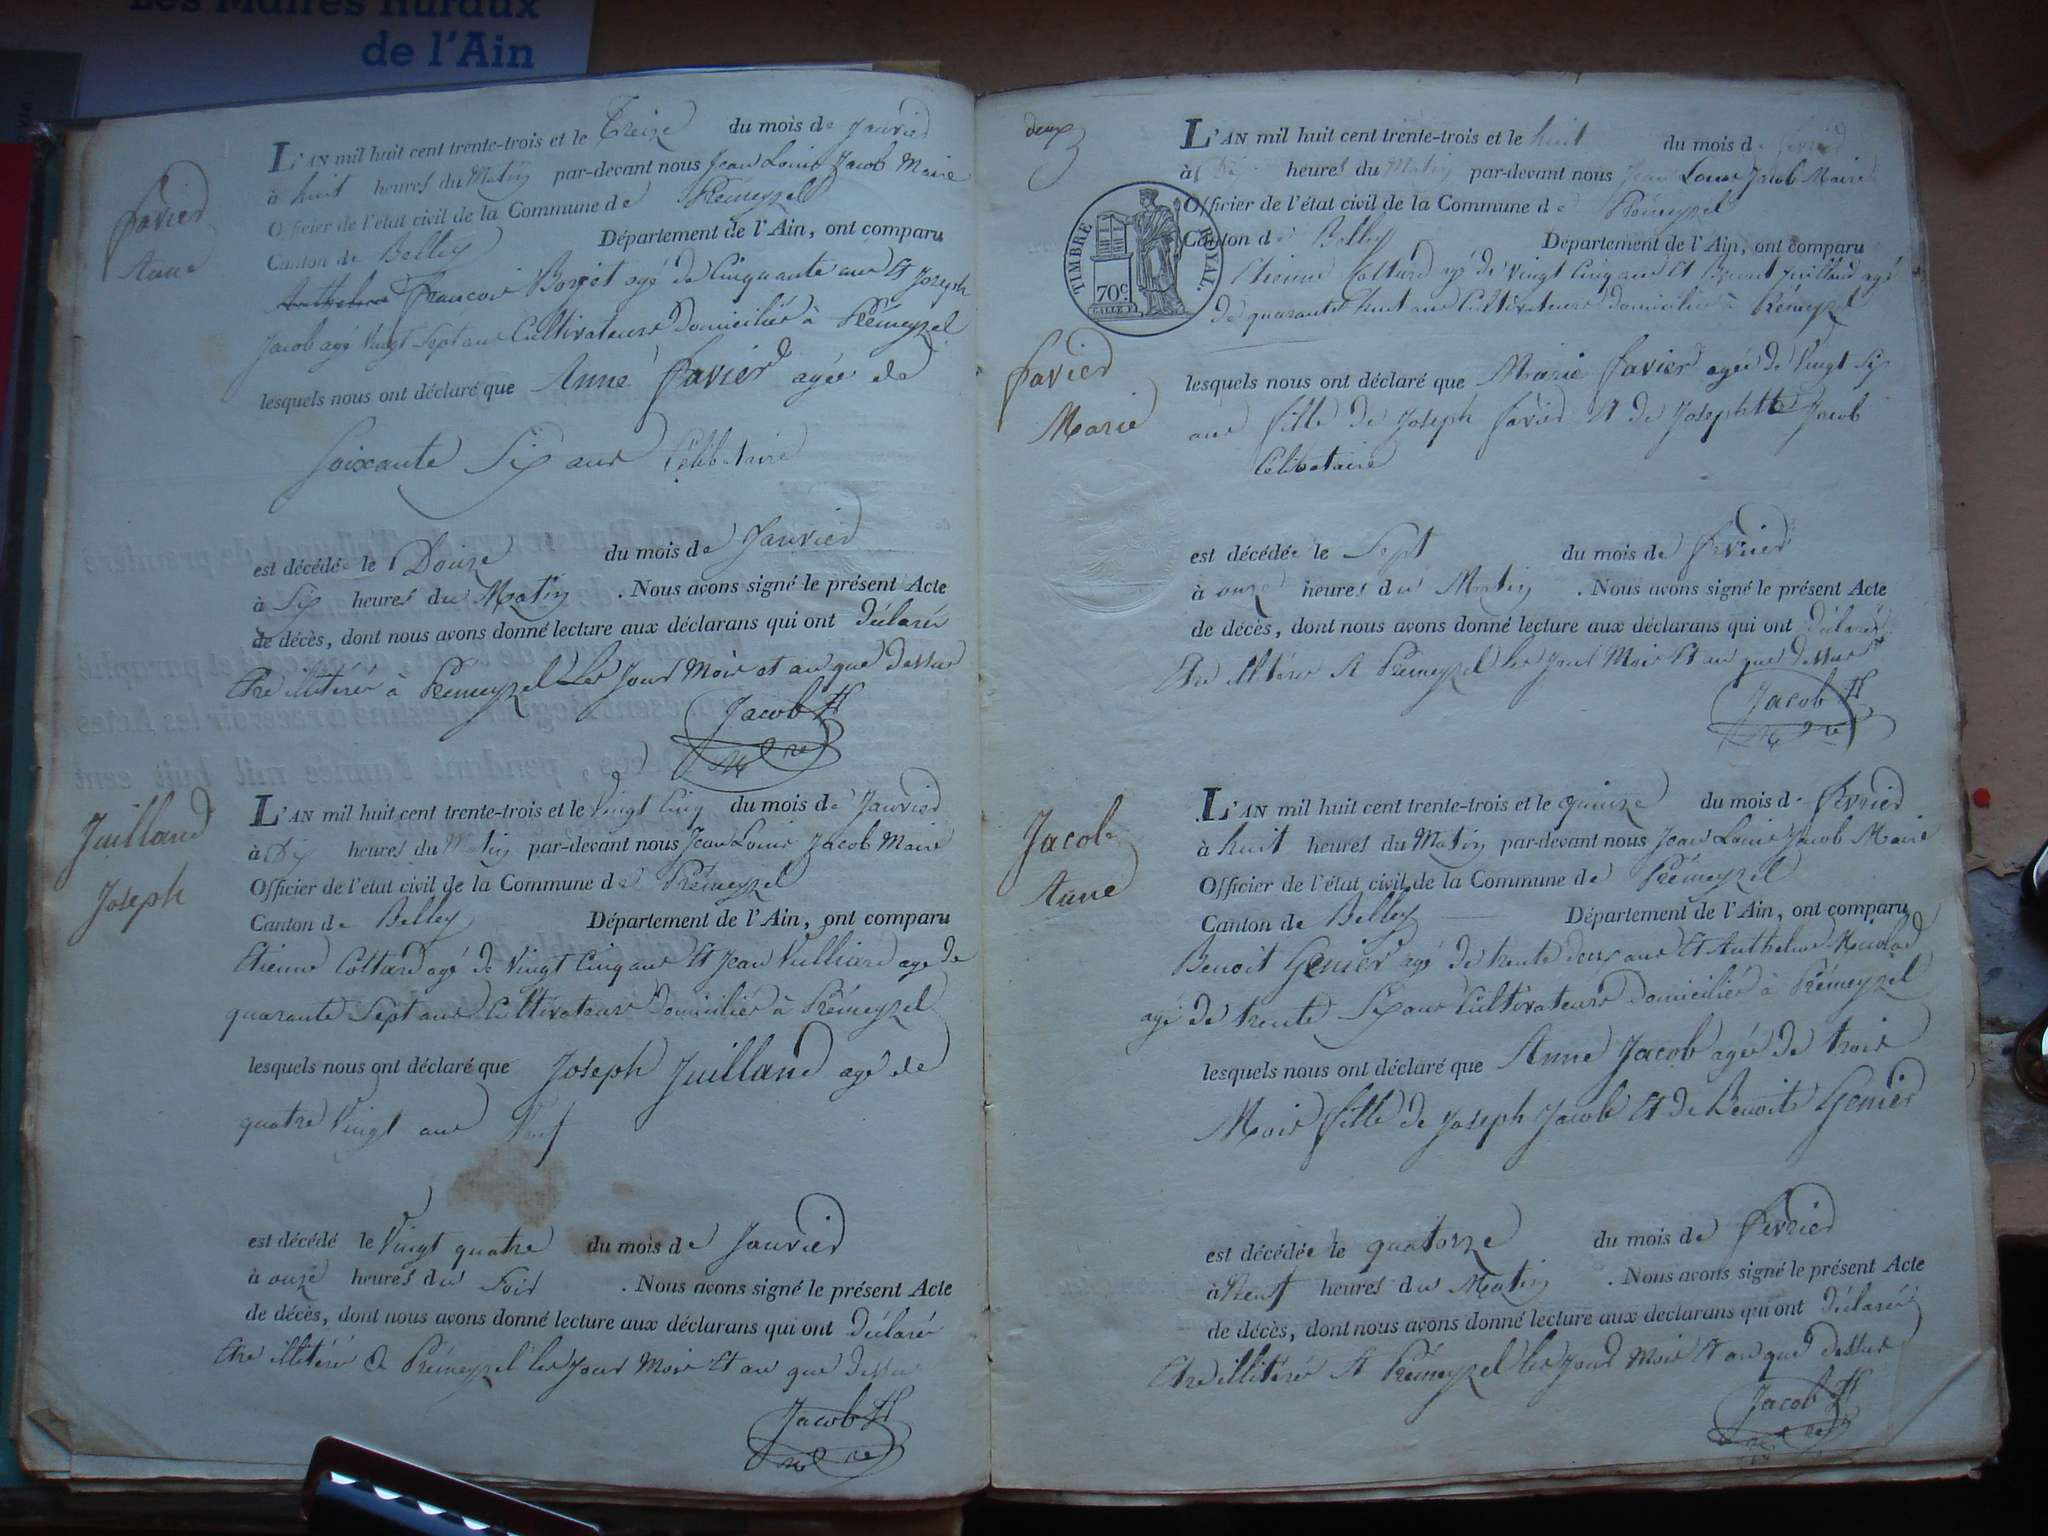 Les Maires Ruraux
de l'Ain
L'AN mil huit cent trente-trois et le Treize du mois de Janvier
à huit heures du Matin par-devant nous Jean Louis Jacob Maire
Officier de l'état civil de la Commune de Prémeyzel
Canton de Belley Département de l'Ain, ont comparu
François Borjet agé de Cinquante ans Et Joseph
Jacob agé Vingt Sept ans Cultivateurs Domiciliés à Prémeyzel
lesquels nous ont déclaré que Anne favier agée de
Soixante Six ans Célibataire
est décédée le Douze du mois de Janvier
à Six heures du Matin . Nous avons signé le présent Acte
de décès, dont nous avons donné lecture aux déclarans qui ont déclarés
Etre illitérés à Prémeyzel Les Jour Mois et an que dessus
Jacob
favier
Anne
L'AN mil huit cent trente-trois et le Vingt Cinq du mois de Janvier
à Dix heures du Matin par-devant nous Jean Louis Jacob Maire
Officier de l'état civil de la Commune de Prémeyzel
Canton de Belley Département de l'Ain, ont comparu
Etienne Cottard agé de Vingt Cinq ans Et Jean Vulliard agé de
quarante Sept ans Cultivateurs Domiciliés à Prémeyzel
lesquels nous ont déclaré que Joseph Juilland agé de
quatre Vingt ans Veuf
est décédé le Vingt quatre du mois de Janvier
à onze heures du Soir . Nous avons signé le présent Acte
de décès, dont nous avons donné lecture aux déclarans qui ont déclarés
Etre illitérés à Prémeyzel les Jour Mois Et an que dessus
Jacob
Juilland
Joseph
deux
TIMBRE ROYAL.
70c
L'AN mil huit cent trente-trois et le huit du mois de fevrier
à Dix heures du Matin par-devant nous Jean Louis Jacob Maire
Officier de l'état civil de la Commune de Prémeyzel
Canton de Belley Département de l'Ain, ont comparu
Etienne Cottard agé de Vingt Cinq ans Et Juilland agé
de quarante huit ans Cultivateurs Domiciliés à Prémeyzel
lesquels nous ont déclaré que Marie favier agée de Vingt Six
ans fille de Joseph favier Et de Josephtte Jacob
Célibataire
est décédée le Sept du mois de fevrier
à onze heures du Matin . Nous avons signé le présent Acte
de décès, dont nous avons donné lecture aux déclarans qui ont déclarés
Etre illitérés A Prémeyzel les Jour Mois Et an que dessus
Jacob
favier
Marie
L'AN mil huit cent trente-trois et le quinze du mois de fevrier
à huit heures du Matin par-devant nous Jean Louis Jacob Maire
Officier de l'état civil de la Commune de Prémeyzel
Canton de Belley Département de l'Ain, ont comparu
Benoit Genier agé de trente deux ans Et Anthelme
agé de trente Six ans Cultivateurs Domiciliés à Prémeyzel
lesquels nous ont déclaré que Anne Jacob agée de trois
Mois fille de Joseph Jacob Et de Benoite Genier
est décédée le quatorze du mois de fevrier
à Neuf heures du Matin . Nous avons signé le présent Acte
de décès, dont nous avons donné lecture aux déclarans qui ont déclarés
Etre illitérés A Prémeyzel les Jour Mois Et an que dessus
Jacob
Jacob
Anne